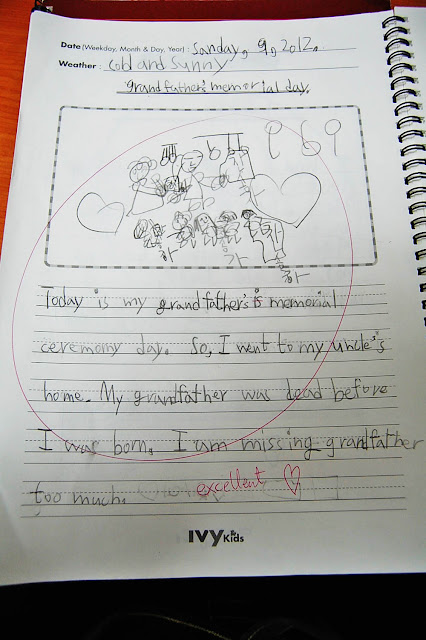 Date (Weekday, Month & Day, Year) : Sanday, 9, 2012.
Weather : Cold and Sunny
grandfather's memorial day.
Today is my grandfather's is memorial
ceremomy day. So, I went to my uncle's
home. My grandfather was dead before
I was born. I am missing grandfather
too much.
excellent
IVY Kids